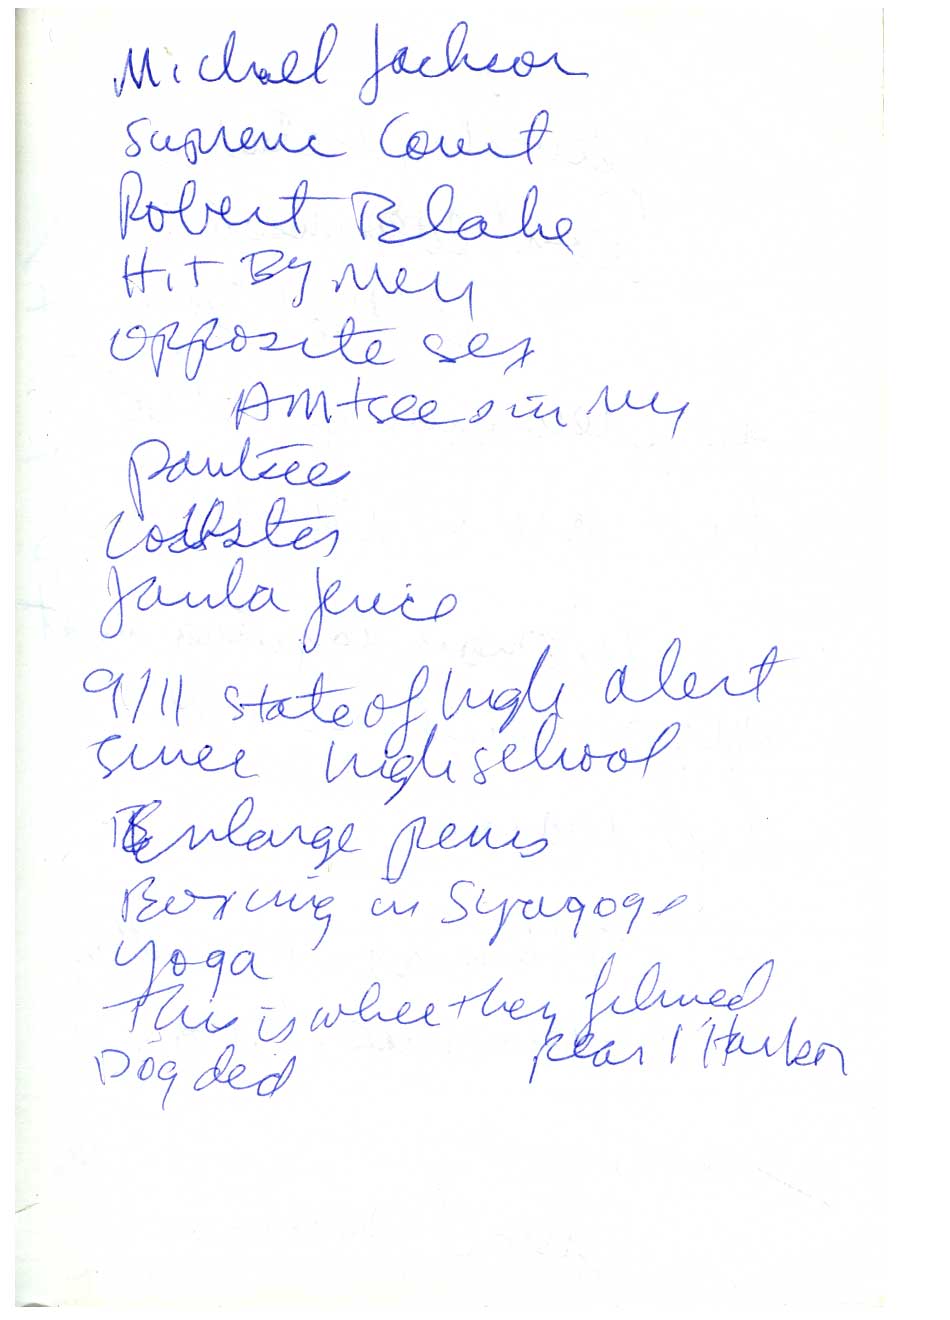 Michael Jackson
Supreme Court
Robert Blake
Hit By Men
opposite sex
in my
pantiee
9/11 state of high alert
since high school
Enlarge penis
Boxing in Synagoge
Yoga
This is where they filmed
Pearl Harbor
Dog died